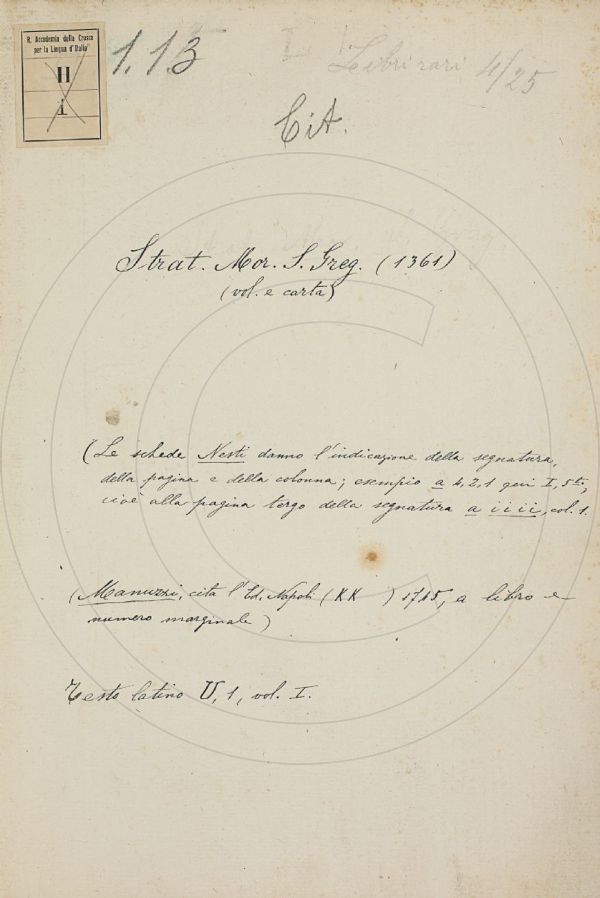 R. Accademia della Crusca
per la Lingua d'Italia
H
i
1.13
Libri rari 4/25
Cit.
Strat. Mor. S. Greg. (1361)
(vol. e carta)
(Le schede Nesti danno l'indicazione della segnatura,
della pagina e della colonna; esempio a 4, 2, 1 qui I, 5to,
cioè alla pagina tergo della segnatura a iiii, col. 1.
(Manuzzi, cita l'Ed. Napoli (KK ) 1745, a libro e
numero marginale)
Testo latino U, 1, vol. I.